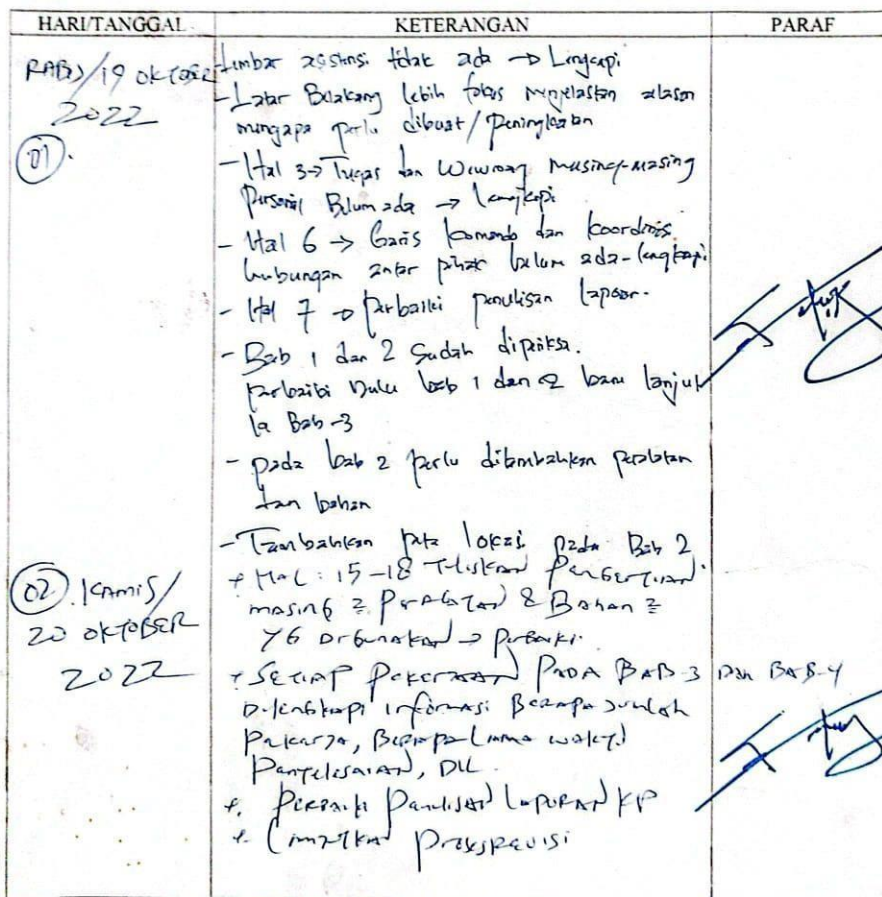 HARI/TANGGAL KETERANGAN PARAF
RABU/19 OKTOBER
2022
01.
- Lembar asistensi tidak ada → Lengkapi
- Latar Belakang lebih fokus menjelaskan alasan
mengapa perlu dibuat/peningkatan
- Hal 3 → Tugas dan Wewenang masing-masing
Personil Belum ada → lengkapi
- Hal 6 → Garis komando dan koordinasi
hubungan antar pihak belum ada - lengkapi
- Hal 7 → perbaiki penulisan laporan.
- Bab 1 dan 2 Sudah diperiksa.
perbaiki Dulu bab 1 dan 2 baru lanjut
ke Bab-3
- pada bab 2 perlu ditambahkan peralatan
dan bahan
- Tambahkan peta lokasi pada Bab 2
02. KAMIS/
20 OKTOBER
2022
+ Hal: 15-18 Tuliskan Pengertian
masing2 Peralatan & Bahan2
YG Digunakan → Perbaiki.
+ SETIAP Pekerjaan PADA BAB-3 Dan BAB-4
Dilengkapi informasi Berapa Jumlah
Pekerja, Berapa Lama waktu
Penyelesaian, Dll.
+. Perbaiki Penulisan LAPORAN KP
+. Lanjutkan Proses Revisi